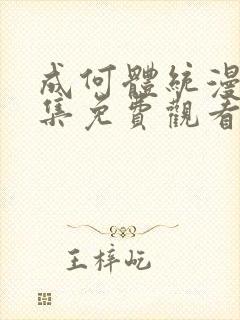 成何體統漫
集免費觀看
王梓屹